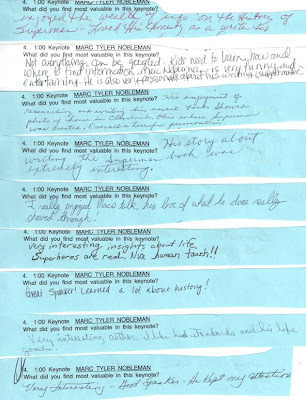 enjoyed the wealth of info on the history of
Superman. Loved his honesty as a writer too
4. 1:00 Keynote MARC TYLER NOBLEMAN
What did you find most valuable in this keynote?
Not everything can be googled. Kids need to learn how and
where to find information. Marc Nobleman is very funny and
entertaining. He is also very passionate about his writing
4. 1:00 Keynote MARC TYLER NOBLEMAN
What did you find most valuable in this keynote?
photo of home in Cleveland, Ohio where Superman
was
4. 1:00 Keynote MARC TYLER NOBLEMAN
What did you find most valuable in this keynote?
His story about
writing the Superman book was
extremely interesting.
4. 1:00 Keynote MARC TYLER NOBLEMAN
What did you find most valuable in this keynote?
I really enjoyed Marc's talk, his love of what he does really
shined through.
4. 1:00 Keynote MARC TYLER NOBLEMAN
What did you find most valuable in this keynote?
Very interesting insights about life
Superheros are real. Nice human touch!!
4. 1:00 Keynote MARC TYLER NOBLEMAN
What did you find most valuable in this keynote?
Great Speaker! Learned a lot about history!
4. 1:00 Keynote MARC TYLER NOBLEMAN
What did you find most valuable in this keynote?
Very interesting author. I like his standards and his life
goals
4. 1:00 Keynote MARC TYLER NOBLEMAN
What did you find most valuable in this keynote?
Very Interesting - Good Speaker - He kept my attention